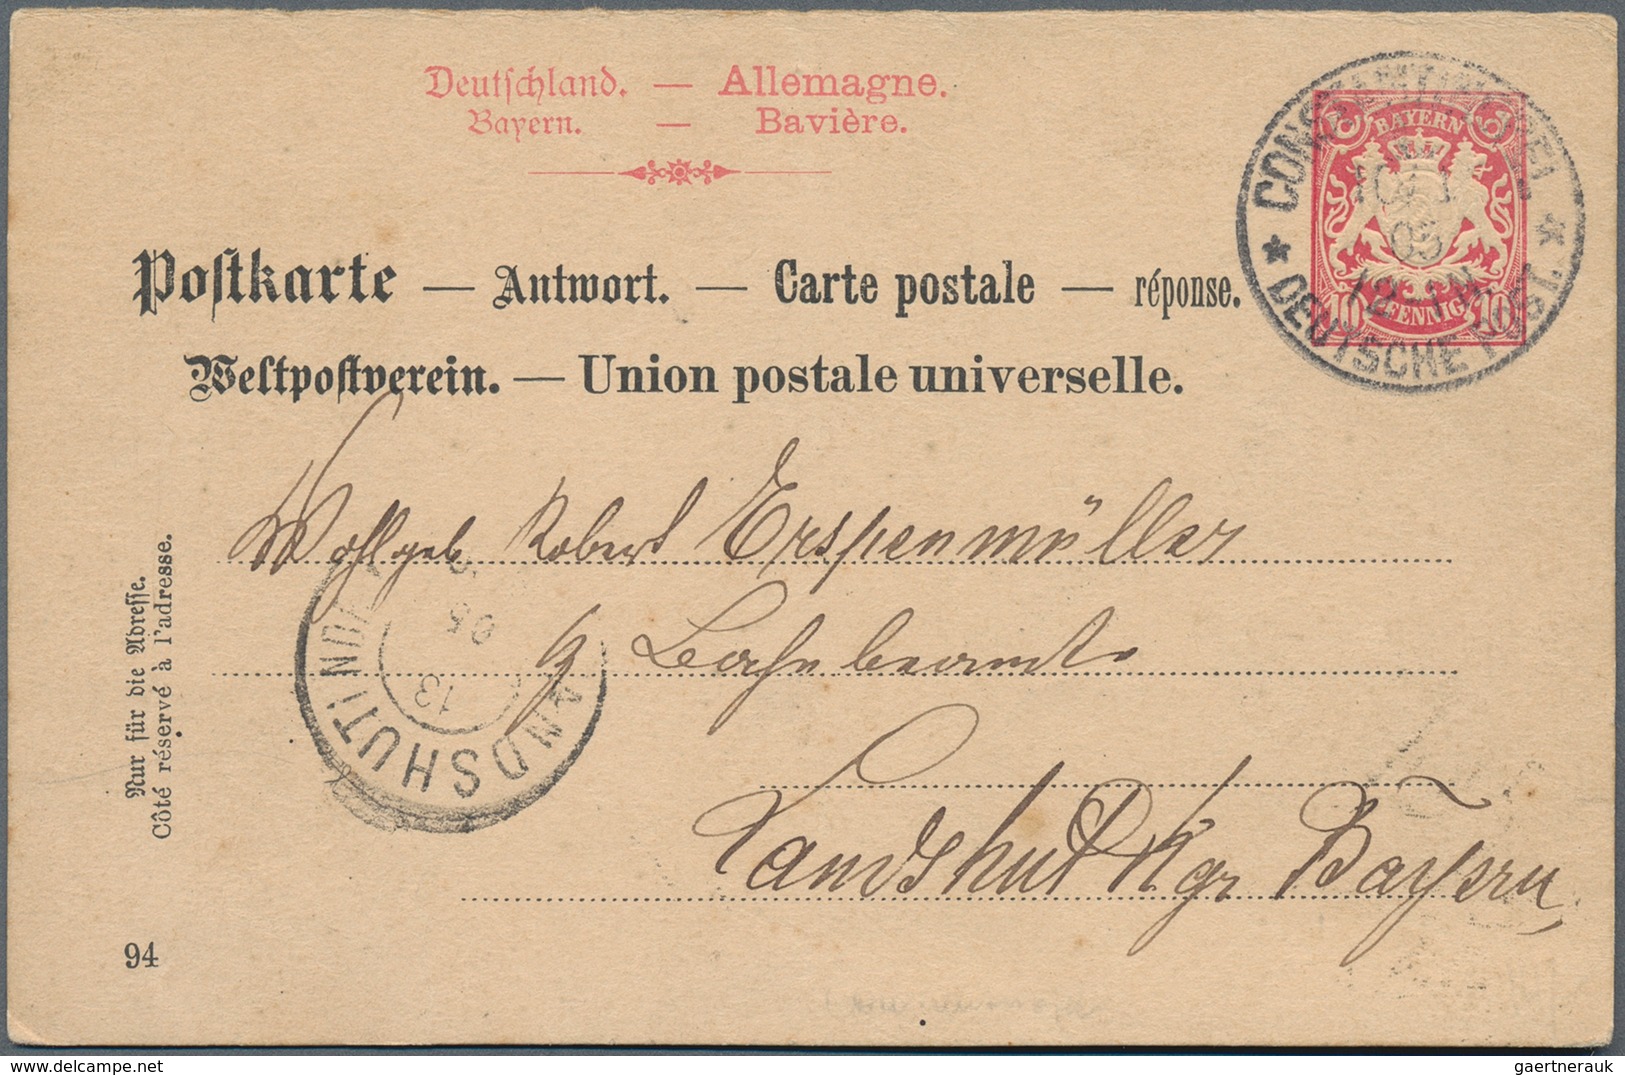 Deutschland. — Allemagne.
Bayern. — Bavière.
Postkarte — Antwort. — Carte postale — réponse.
Weltpostverein. — Union postale universelle.
BAYERN
10 PFENNIG 10
DEUTSCHE POST.
Wohlgeb Robert Erspenmüller
Bahnbeamte
Landshut Kgr Bayern
LANDSHUT
13
95
Nur für die Adresse.
Côté réservé à l'adresse.
94
delcampe.net
gaertnerauk